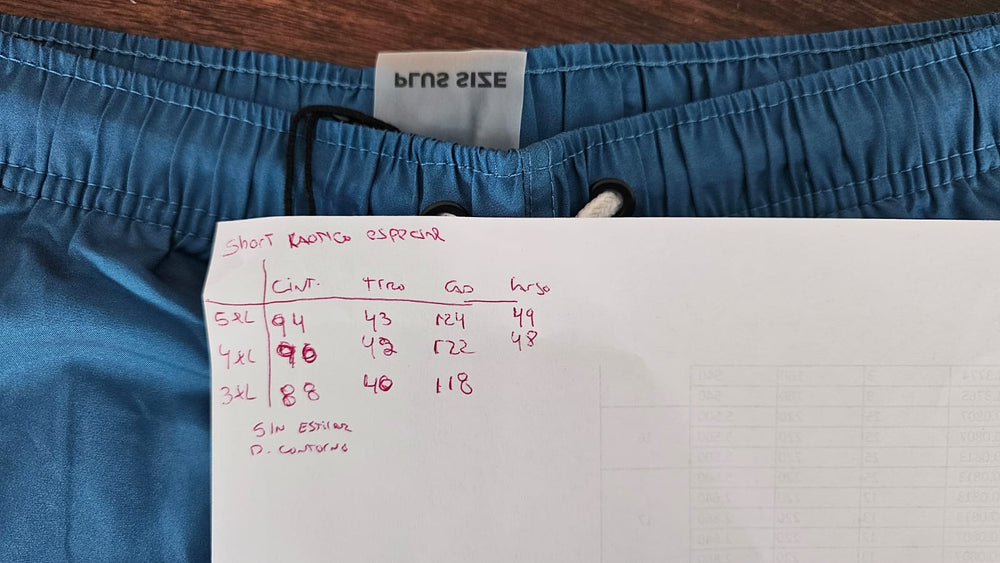 PLUS SIZE
Short KAOTICO especial
CINT. TIRO CAD Largo
5XL 94 43 124 49
4XL 96 42 122 48
3XL 88 40 118
SIN ESTIRAR
D. CONTORNO